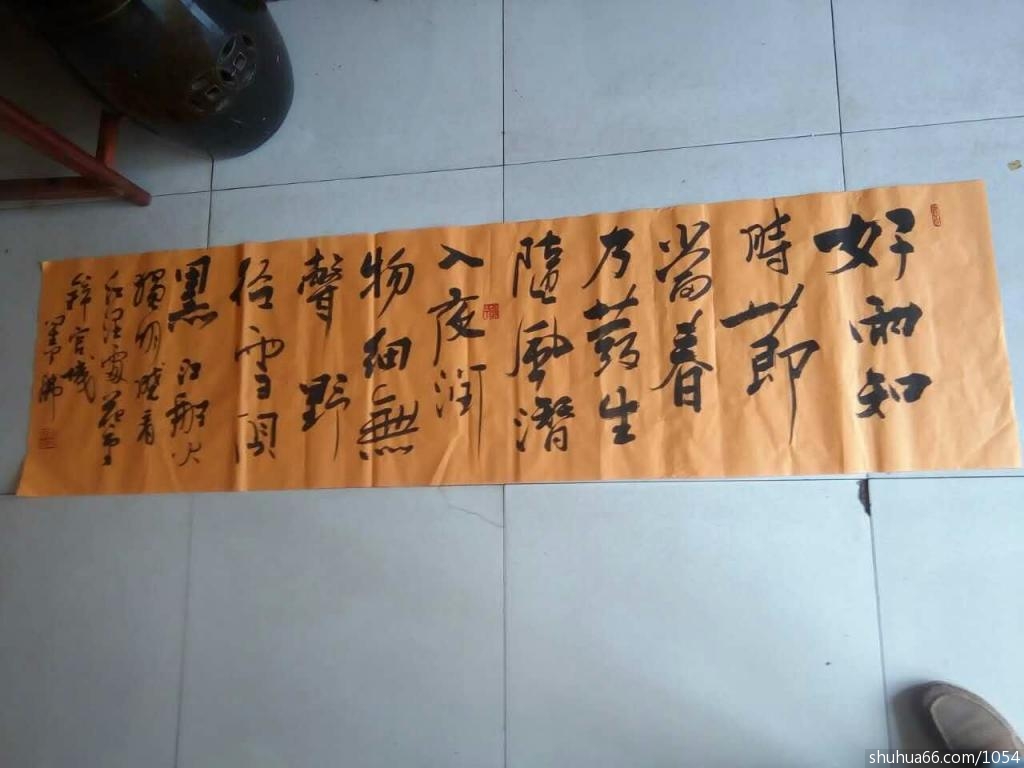 好雨知
時節
當春
乃發生
隨風潛
入夜潤
物細無
聲野
徑雲俱
黑江船火
獨明曉看
紅湿處花重
錦官城
shuhua66.com/1054